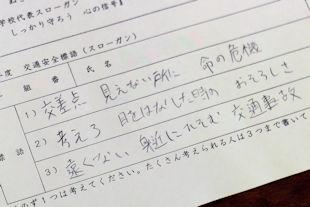 学校代表スローガン
しっかり守ろう 心の信号』
度 交通安全標語(スローガン)
組 番 氏 名
1) 交差点 見えない所に 命の危機
2) 考えろ 目をはなした時の おそろしさ
3) 遠くない 身近にひそむ 交通事故
標 語
必ず1つは考えてください。たくさん考えられる人は3つまで書いて